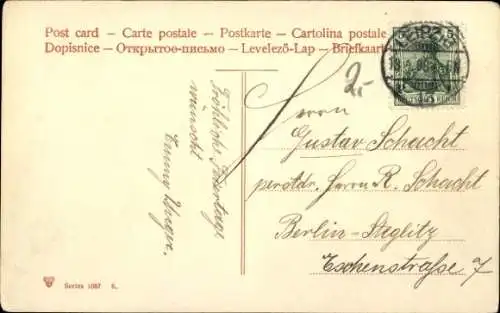 Post card – Carte postale – Postkarte – Cartolina postale
Dopisnice – Открытое-письмо – Levelező-Lap – Briefkaart
2,-
LEIPZIG
DEUTSCHES REICH
Fröhliche Feiertage
wünscht
Herrn
Gustav Schacht
per Adr. Herrn R. Schacht
Berlin-Steglitz
Eschenstraße 7
Series 1087